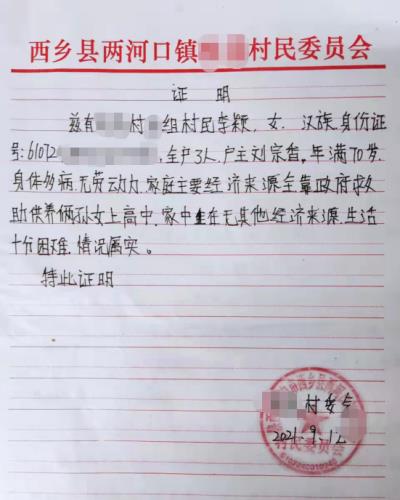 西乡县两河口镇 村民委员会
证 明
兹有 村 组村民李颖,女,汉族,身份证
号:61072 ,全户3人,户主刘宗香,年满70岁,
身体多病,无劳动力,家庭主要经济来源全靠政府救
助供养俩孙女上高中,家中在无其他经济来源,生活
十分困难,情况属实。
特此证明
村委会
2021.9.12